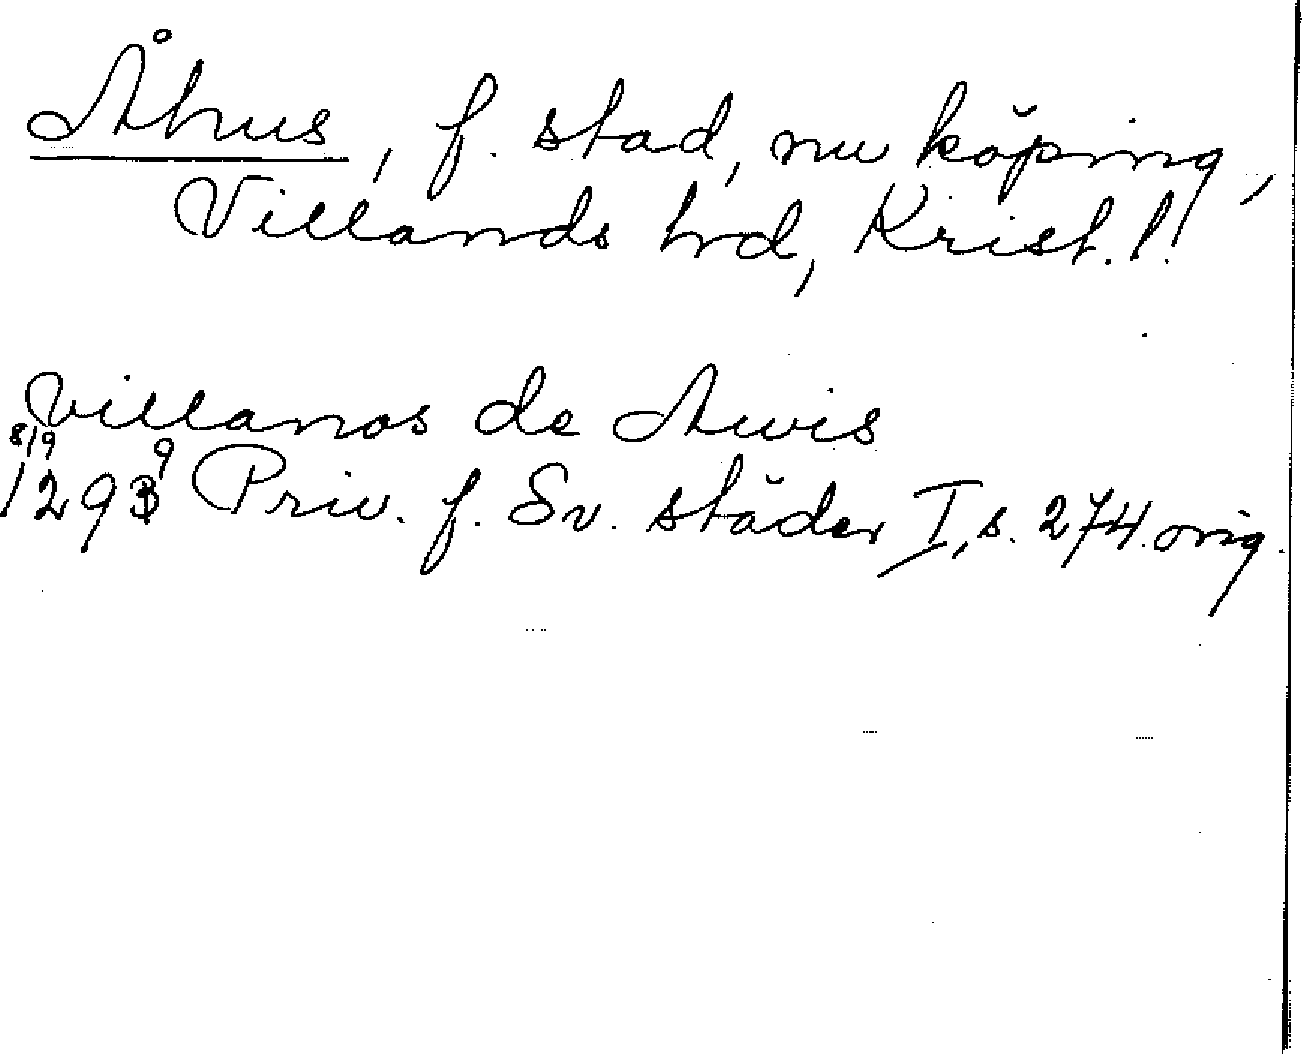 Åhus, f. stad, nu köping,
Villands hd, Krist. l.
villanos de Awis
8/9 1299 Priv. f. Sv. städer I, s. 274. orig.